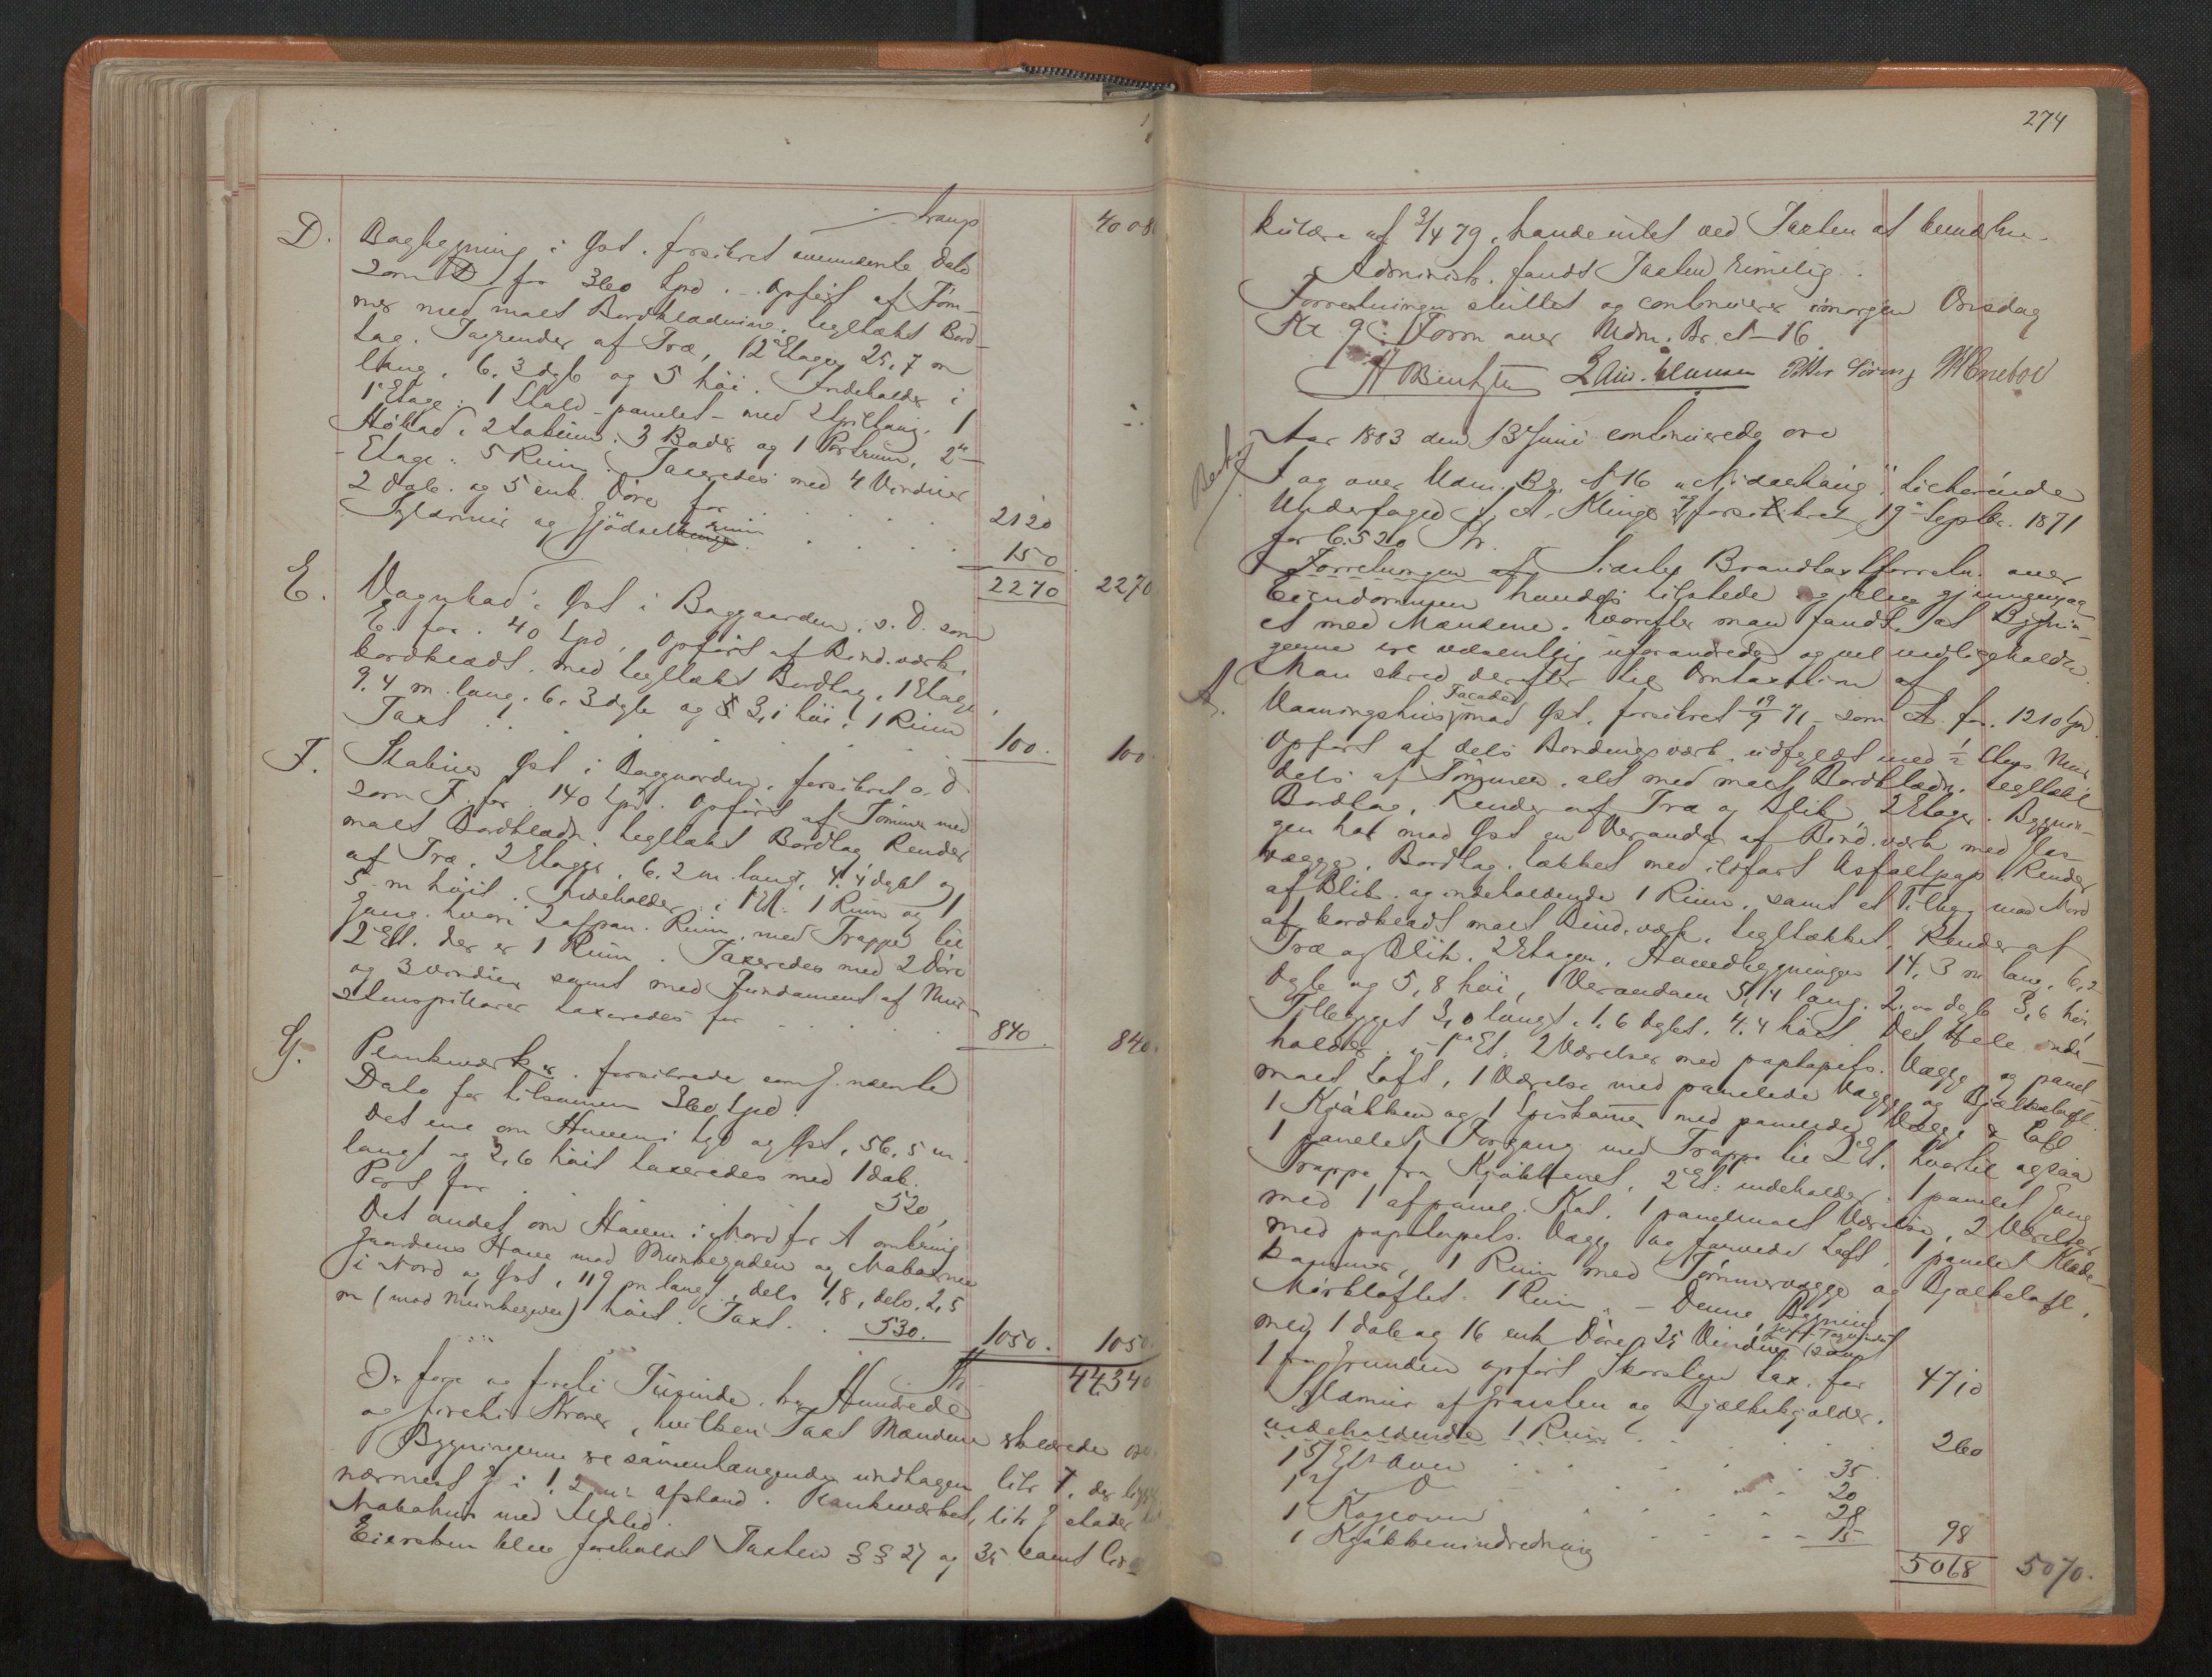 transp 4008
D. Bagbygning i Øst. forsikret ovennævnte Dato
som D for 360 Spd. Opført af Töm-
mer med malt Bordklædning, tegltækt Bord-
tag. Tagrender af Træ, 2 Etager 25,7 m
lang, 6,3 dyb og 5 høi. Indeholder i
1 Etage: 1 Stald - panelet - med Spiltaug, 1
3 Boder og 1 Portrum, 2n
Etage: 5 Rum. Taxeredes med 4 Vinduer
2 dob. og 5 enk. Døre for 2120
Syldmur og Gjødsel rum 150
2270 2270
E. Vognskad i Øst i Baggaarden, s. D. som
E. for 40 Spd, Opført af Bind.værk,
bordklædt, med tegltækt Bordtag, 1 Etage
9,4 m. lang, 6,3 dyb og 3,1 høi. 1 Rum
Taxt 100. 100.
F. Stabur Øst i Baggaarden, forsikret s. D
som F. for 140 Spd. Opført af Tömmer med
malt Bordklædn. tegltækt Bordtag, Render
af Træ, 2 Etager, 6,2 m. langt, 4,4 dybt og
5 m høit. Indeholder i 1 Et. 1 Rum og 1
Gang. hvori 2 afpan. Rum, med Trappe til
2 Et. der er 1 Rum. Taxeredes med 2 Döre
og 3 Vinduer samt med Fundament af Mur-
stenspillarer taxeredes for 840. 840.
G. Plankeværker. forsikrede som G. nævnte
Dato for tilsammen 360 Spd.
Det ene om Haven i Syd og Øst, 56,5 m.
langt og 2,6 høit taxeredes med 1 dob.
Port for 520
Det andet om Haven i Nord for A omkring
Gaardens Have mod Munkegaden og Naboerne
i Nord og Øst, 119 m langt, dels 1,8, dels 2,5
m (mod Munkegaden) høit. Taxt. 530. 1050. 1050.
Kr. 44340
Er fire og firti Tusinde, tre Hundrede
og fireti Kroner, hvilken Taxt Mændene erklærede
Bygningerne ere sammenhængende undtagen litr F, der ligger
nærmest G i 1,2 m. Afstand. Plankeværket, litr G støder
Nabohus med Ildsted.
Eiersken blev foreholdt Taxtlov §§ 27 og 35 samt Cir-
274
kulære af 3/4 79, havde intet ved Taxten at bemærke.
Administr. fandt Taxten rimelig.
Forretningen sluttet og continuerer imorgen Onsdag
Kl 9 Form over Mdm. Br. A-16
Aar 1883 den 13 Juni continuerede
I og over Mdm. Br. A 16 tilhørende
Underfoged A. Klinge og forsikret 19 Septbr. 1871
for 6520 Kr.
Forretningen Sidste Brandtaxtforretn. over
Eiendommen havdes tilstede og blev gjennemgaa-
et med Mændene. hvorefter man fandt, at Bygnin-
gerne ere væsentlig uforandrede og vel vedligeholdte.
Man skred derefter til Omtaxtion af
A. Vaaningshus, Facaden mod Øst, forsikret 19/9 71 som A for 1210 Spd.
Opført af dels Bindingsværk udfyldt med 1/2 Stens Mur
dels af Tömmer, alt med malt Bordklædn. tegltækt
Bordtag, Render af Træ og Blik, 2 Etager. Bygnin-
gen har mod Øst en Veranda af Bind.værk med Glas-
vægge, Bordtag, tækket med ildfast Asfaltpap. Render
af Blik. og indeholdende 1 Rum, samt et Tilbyg mod Nord
af bordklædt malt Bind.værk, tegltækket. Render af
Træ og Blik. 2 Etager. Hovedbygningen 14,3 m lang, 6,2
dyb og 5,8 høi, Verandaen 5,14 lang. dyb 3,6 høi,
Tilbygget 3,0 langt, 1,6 dybt, 4,4 høit. Det Hele inde-
holder i 1ste Et. 2 Værelser med paptapets. Vægge og panel-
malt Loft, 1 Værelse med panelede Vægge og Bjælkeloft,
1 Kjøkken og 1 Spiskamer med panelede Vægge & Loft
1 panelet Forgang med Trappe til 2 Et. hvortil ogsaa
Trappe fra Kjøkkenet. 2 Et: indeholder 1 panelet Gang
med 1 afpanel. Kot. 1 panelmalt Værelse, 2 Værelser
med paptapets. Vægg og farvede Loft, 1 panelet Klæde-
kammer, 1 Rum med Tømmervægge og Bjælkeloft.
Mørkloftet. 1 Rum. - Denne Bygning
med 1 dob og 16 enk Døre 25 Vinduer samt
1 fra Grunden opført Skorsten tax. for 4710
Sylmur af Graasten og Bjælkekjælder.
indeholdende 1 Rum 260
1 Et Oven 35
1 20
1 Kogeovn 28
1 Kjøkkenindredning 15 98
5068 5070.